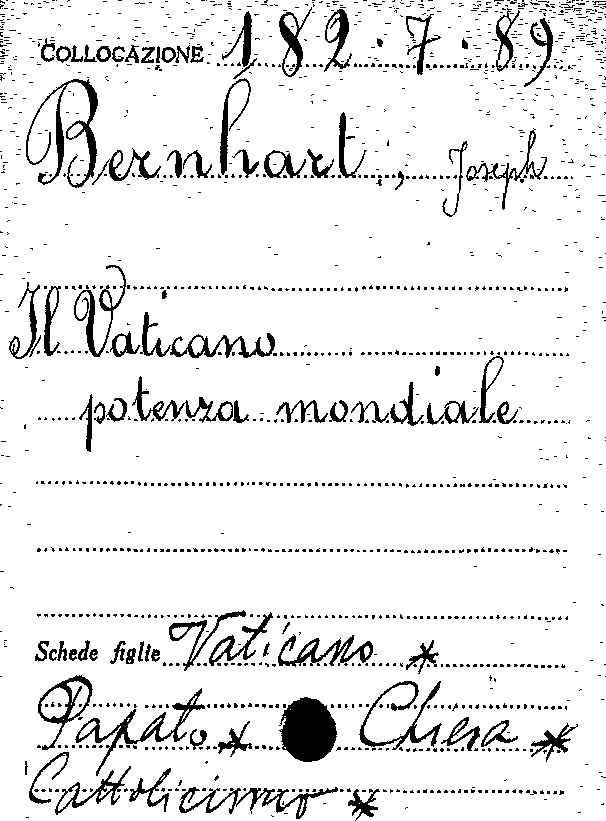 COLLOCAZIONE 182.7.89
Bernhart, Joseph
Il Vaticano
potenza mondiale
Schede figlie Vaticano *
Papato * Chiesa *
Cattolicismo *